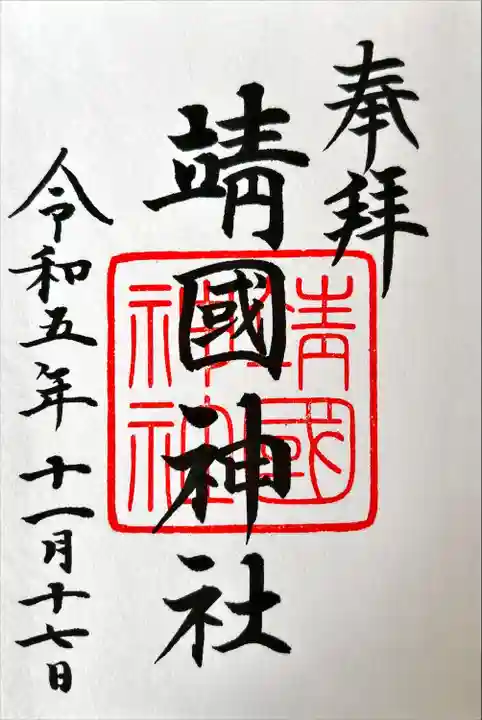 奉拝
靖國神社
令和五年十一月十七日
靖國
神社